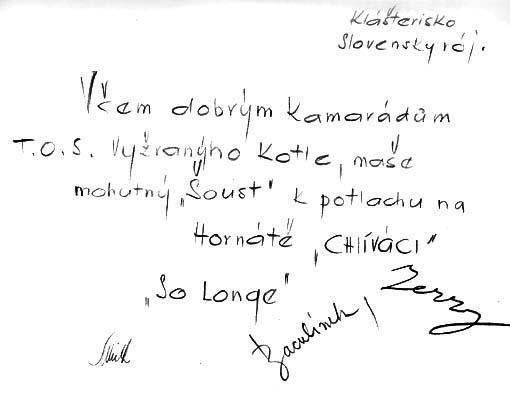 Klášterisko
Slovenský ráj.
Všem dobrým kamarádům
T.O.S. Vyžranýho Kotle, naše
mohutný „Šoust" k potlachu na
Hornátě „CHLÍVÁCI"
„SO LONGE"